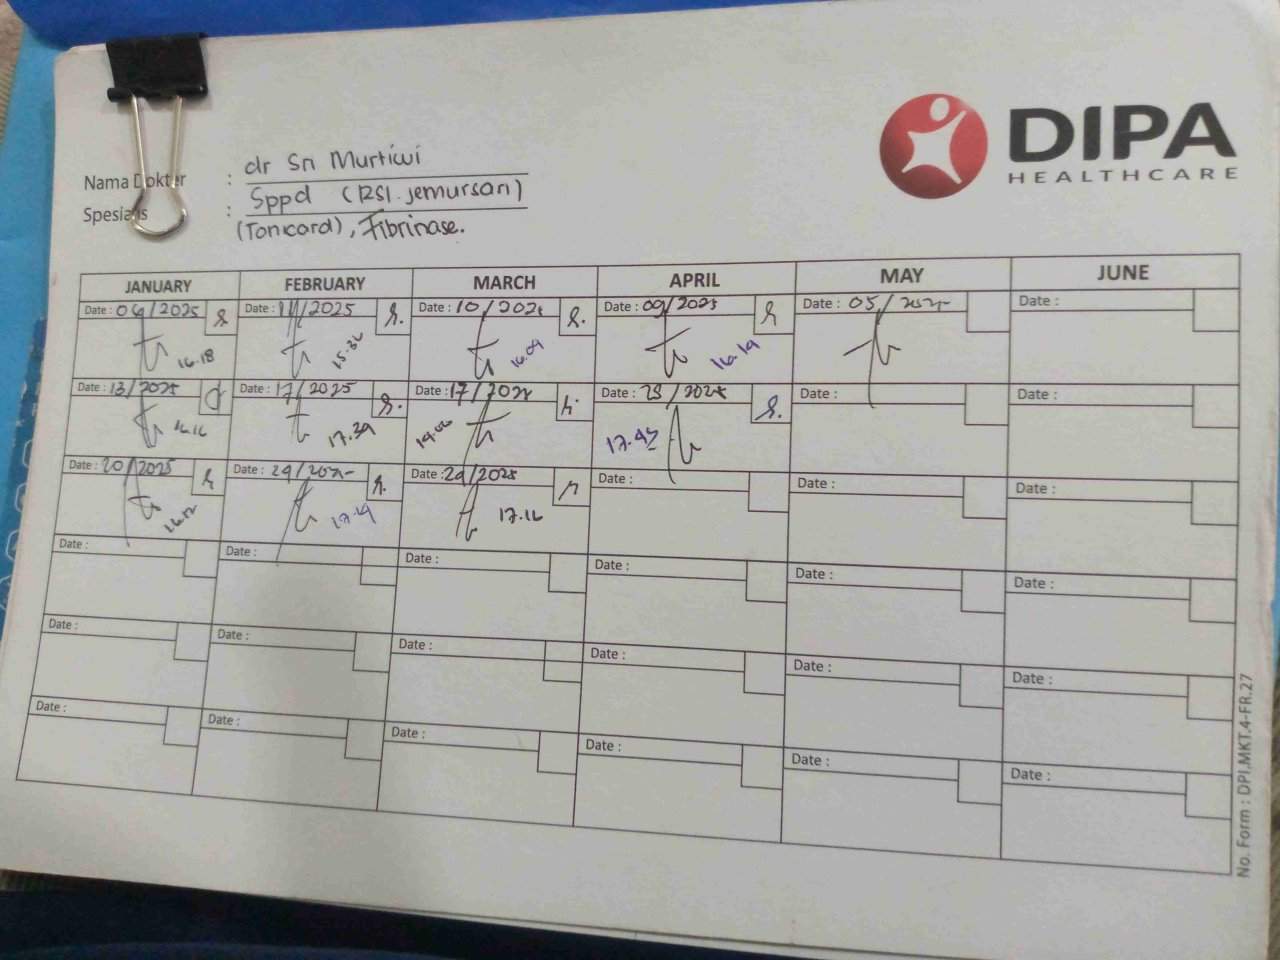 DIPA
HEALTHCARE
Nama Dokter : dr Sri Murtiwi
Spesialis : Sppd (RSI. Jemursari)
(Tonicard), Fibrinase.
JANUARY FEBRUARY MARCH APRIL MAY JUNE
Date : 06/2025 Date : 11/2025 Date : 10/2025 Date : 09/2025 Date : 05/2025 Date :
16.18 15.36 16.09 16.19
Date : 13/2025 Date : 17/2025 Date : 17/2025 Date : 23/2025 Date : Date :
16.16 17.39 19.06 17.43
Date : 20/2025 Date : 24/2025 Date : 24/2025 Date : Date : Date :
16.12 17.19 17.16
Date : Date : Date : Date : Date : Date :
Date : Date : Date : Date : Date : Date :
Date : Date : Date : Date : Date : Date :
No. Form : DPI.MKT.4-FR.27